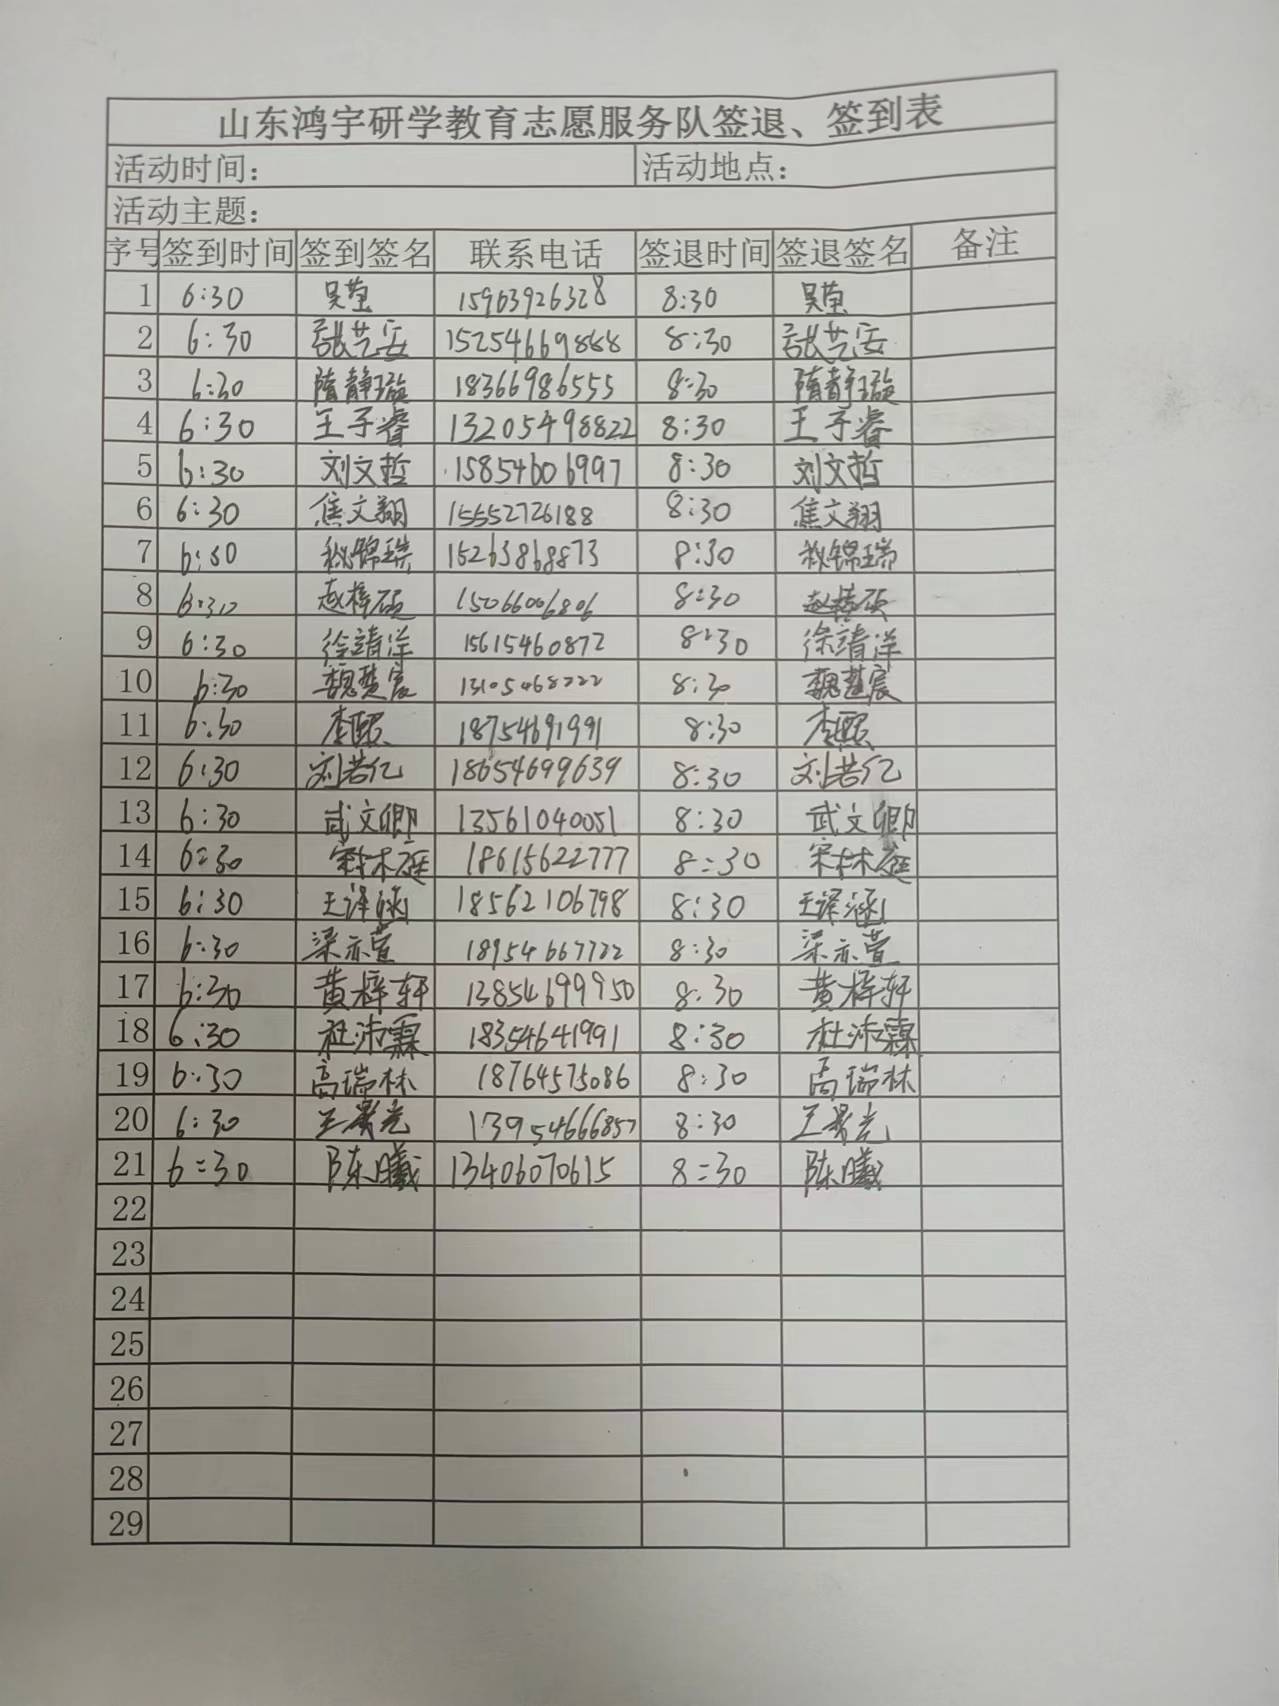 山东鸿宇研学教育志愿服务队签退、签到表
活动时间： 活动地点：
活动主题：
序号 签到时间 签到签名 联系电话 签退时间 签退签名 备注
1 6:30 吴莹 15963926328 8:30 吴莹
2 6:30 张艺安 15254669888 8:30 张艺安
3 6:30 隋静璇 18366986555 8:30 隋静璇
4 6:30 王子睿 13205498822 8:30 王子睿
5 6:30 刘文哲 15854606997 8:30 刘文哲
6 6:30 焦文翔 15552726188 8:30 焦文翔
7 6:30 秘锦瑞 15263868873 8:30 秘锦瑞
8 6:30 赵梓硕 15066006806 8:30 赵梓硕
9 6:30 徐靖洋 15615460872 8:30 徐靖洋
10 6:30 魏楚宸 13105468222 8:30 魏楚宸
11 6:30 李熙 18754691991 8:30 李熙
12 6:30 刘若亿 18654699639 8:30 刘若亿
13 6:30 武文卿 13561040051 8:30 武文卿
14 6:30 宋林庭 18615622777 8:30 宋林庭
15 6:30 王译涵 18562106798 8:30 王译涵
16 6:30 梁亦萱 18954667722 8:30 梁亦萱
17 6:30 黄梓轩 13854699950 8:30 黄梓轩
18 6:30 杜沛霖 18354641991 8:30 杜沛霖
19 6:30 高瑞林 18764575086 8:30 高瑞林
20 6:30 王景光 13954666857 8:30 王景光
21 6:30 陈曦 13406070615 8:30 陈曦
22
23
24
25
26
27
28
29